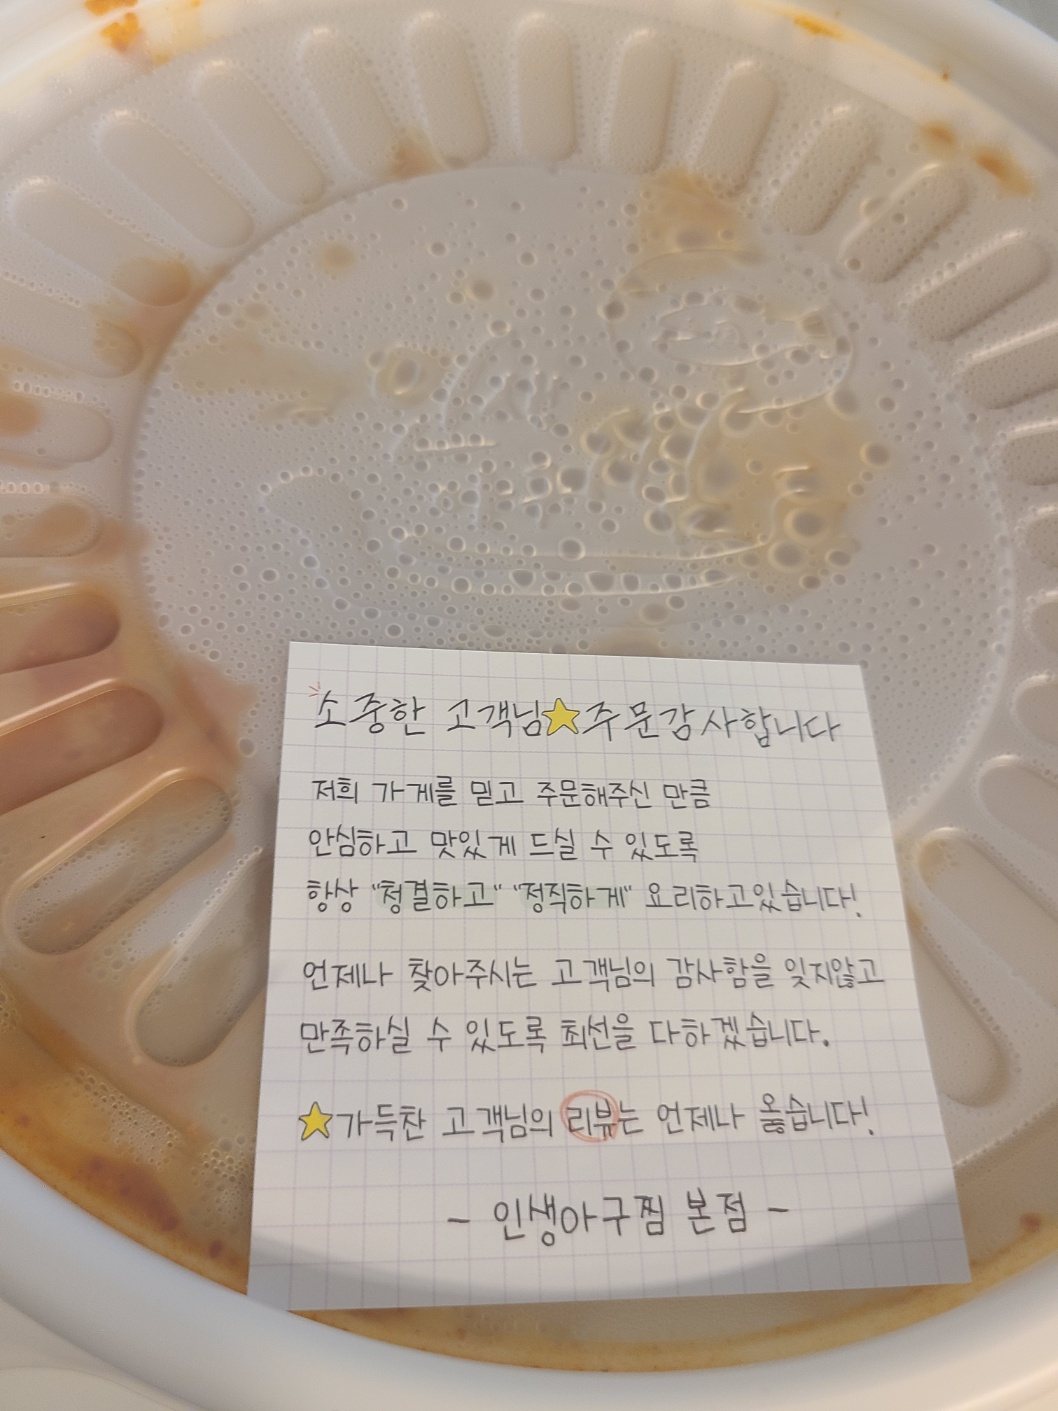 소중한 고객님⭐주문감사합니다
저희 가게를 믿고 주문해주신 만큼
안심하고 맛있게 드실 수 있도록
항상 "청결하고" "정직하게" 요리하고있습니다!
언제나 찾아주시는 고객님의 감사함을 잊지않고
만족하실 수 있도록 최선을 다하겠습니다.
⭐가득찬 고객님의 리뷰는 언제나 옳습니다!
- 인생아구찜 본점 -